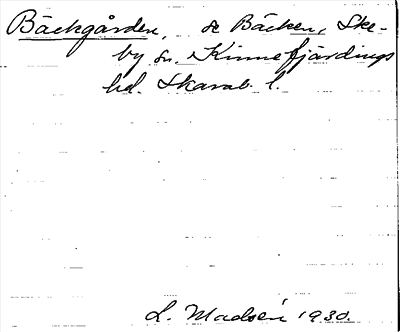 Bäckgården, se Bäcken, Ske-
by sn. Kinnefjärdings
hd. Skarab. l.
L. Madsén 1930.